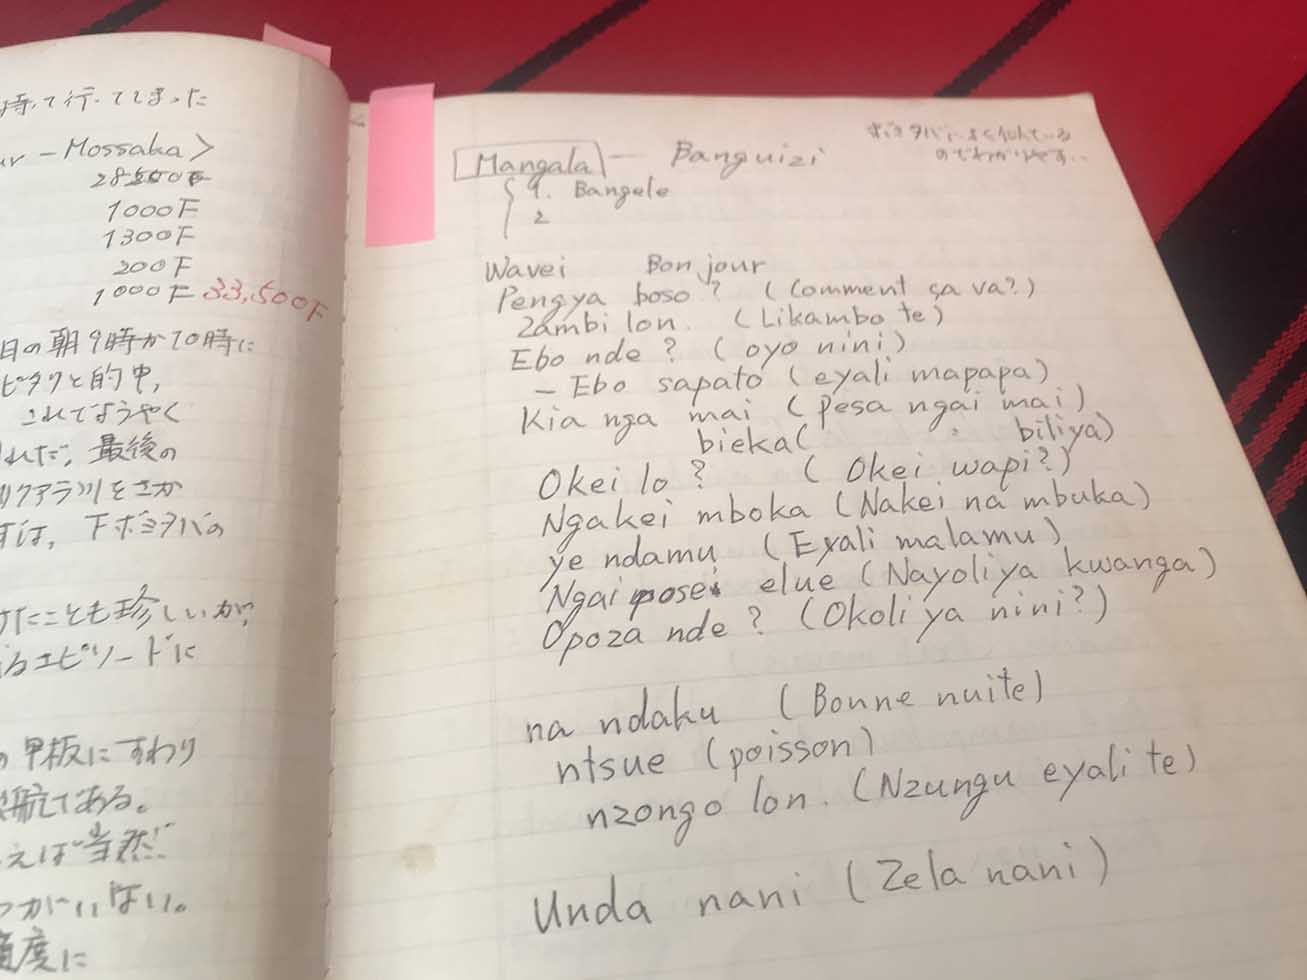 持って行ってしまった
ur - Mossaka>
28500F
1000F
1300F
200F
1000F 33,500F
日の朝9時か10時に
ピタリと的中,
これでようやく
れだ, 最後の
クアラ川をさか
ずは, 下ボミタバの
けたことも珍しいが,
るエピソードに
の甲板にすわり
航てある。
えば当然
つがいはい。
適度に
ボミタバによく似ている
のでわかりやすい
Mangala — Banguizi
1. Bangele
2
Wavei Bonjour
Pengya boso? (Comment ça va?)
Zambi lon. (Likambo te)
Ebo nde? (oyo nini)
- Ebo sapato (eyali mapapa)
Kia nga mai (pesa ngai mai)
bieka( biliya)
Okei lo? (Okei wapi?)
Ngakei mboka (Nakei na mbuka)
ye ndamu (Eyali malamu)
Ngai posei elue (Nayoli ya kwanga)
Opoza nde? (Okoli ya nini?)
na ndaku (Bonne nuite)
ntsue (poisson)
nzongo lon. (Nzungu eyali te)
Unda nani (Zela nani)